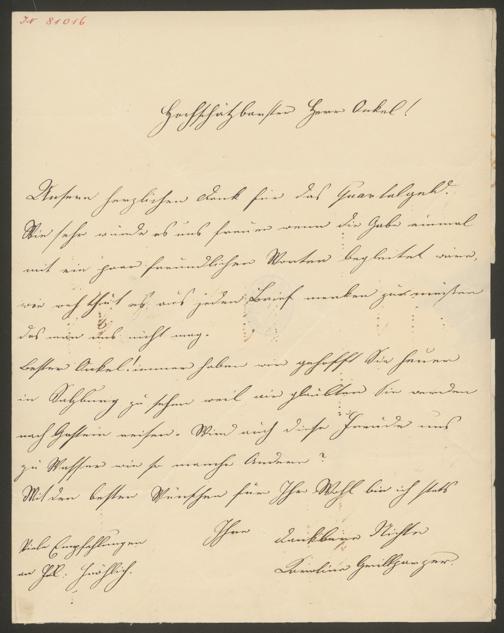 IN 81016
Hochschätzbarster Herr Onkel!
Unsern herzlichen Dank für das Quartalgeld.
Wie sehr würde es uns freuen wenn die Gabe einmal
mit ein paar freundlichen Worten begleitet wäre,
wie weh thut es, aus jeden Brief merken zu müssen
das man uns nicht mag.
Bester Onkel! immer haben wir gehofft Sie heuer
in Salzburg zu sehen weil wir glaubten Sie werden
nach Gastein reisen. Wird auch diese Freude uns
zu Wasser wie so manche Andere?
Mit den besten Wünschen für Ihr Wohl bin ich stets
Ihre dankbare Nichte
Karolina Grillparzer.
Viele Empfehlungen
an Frl. Fröhlich.